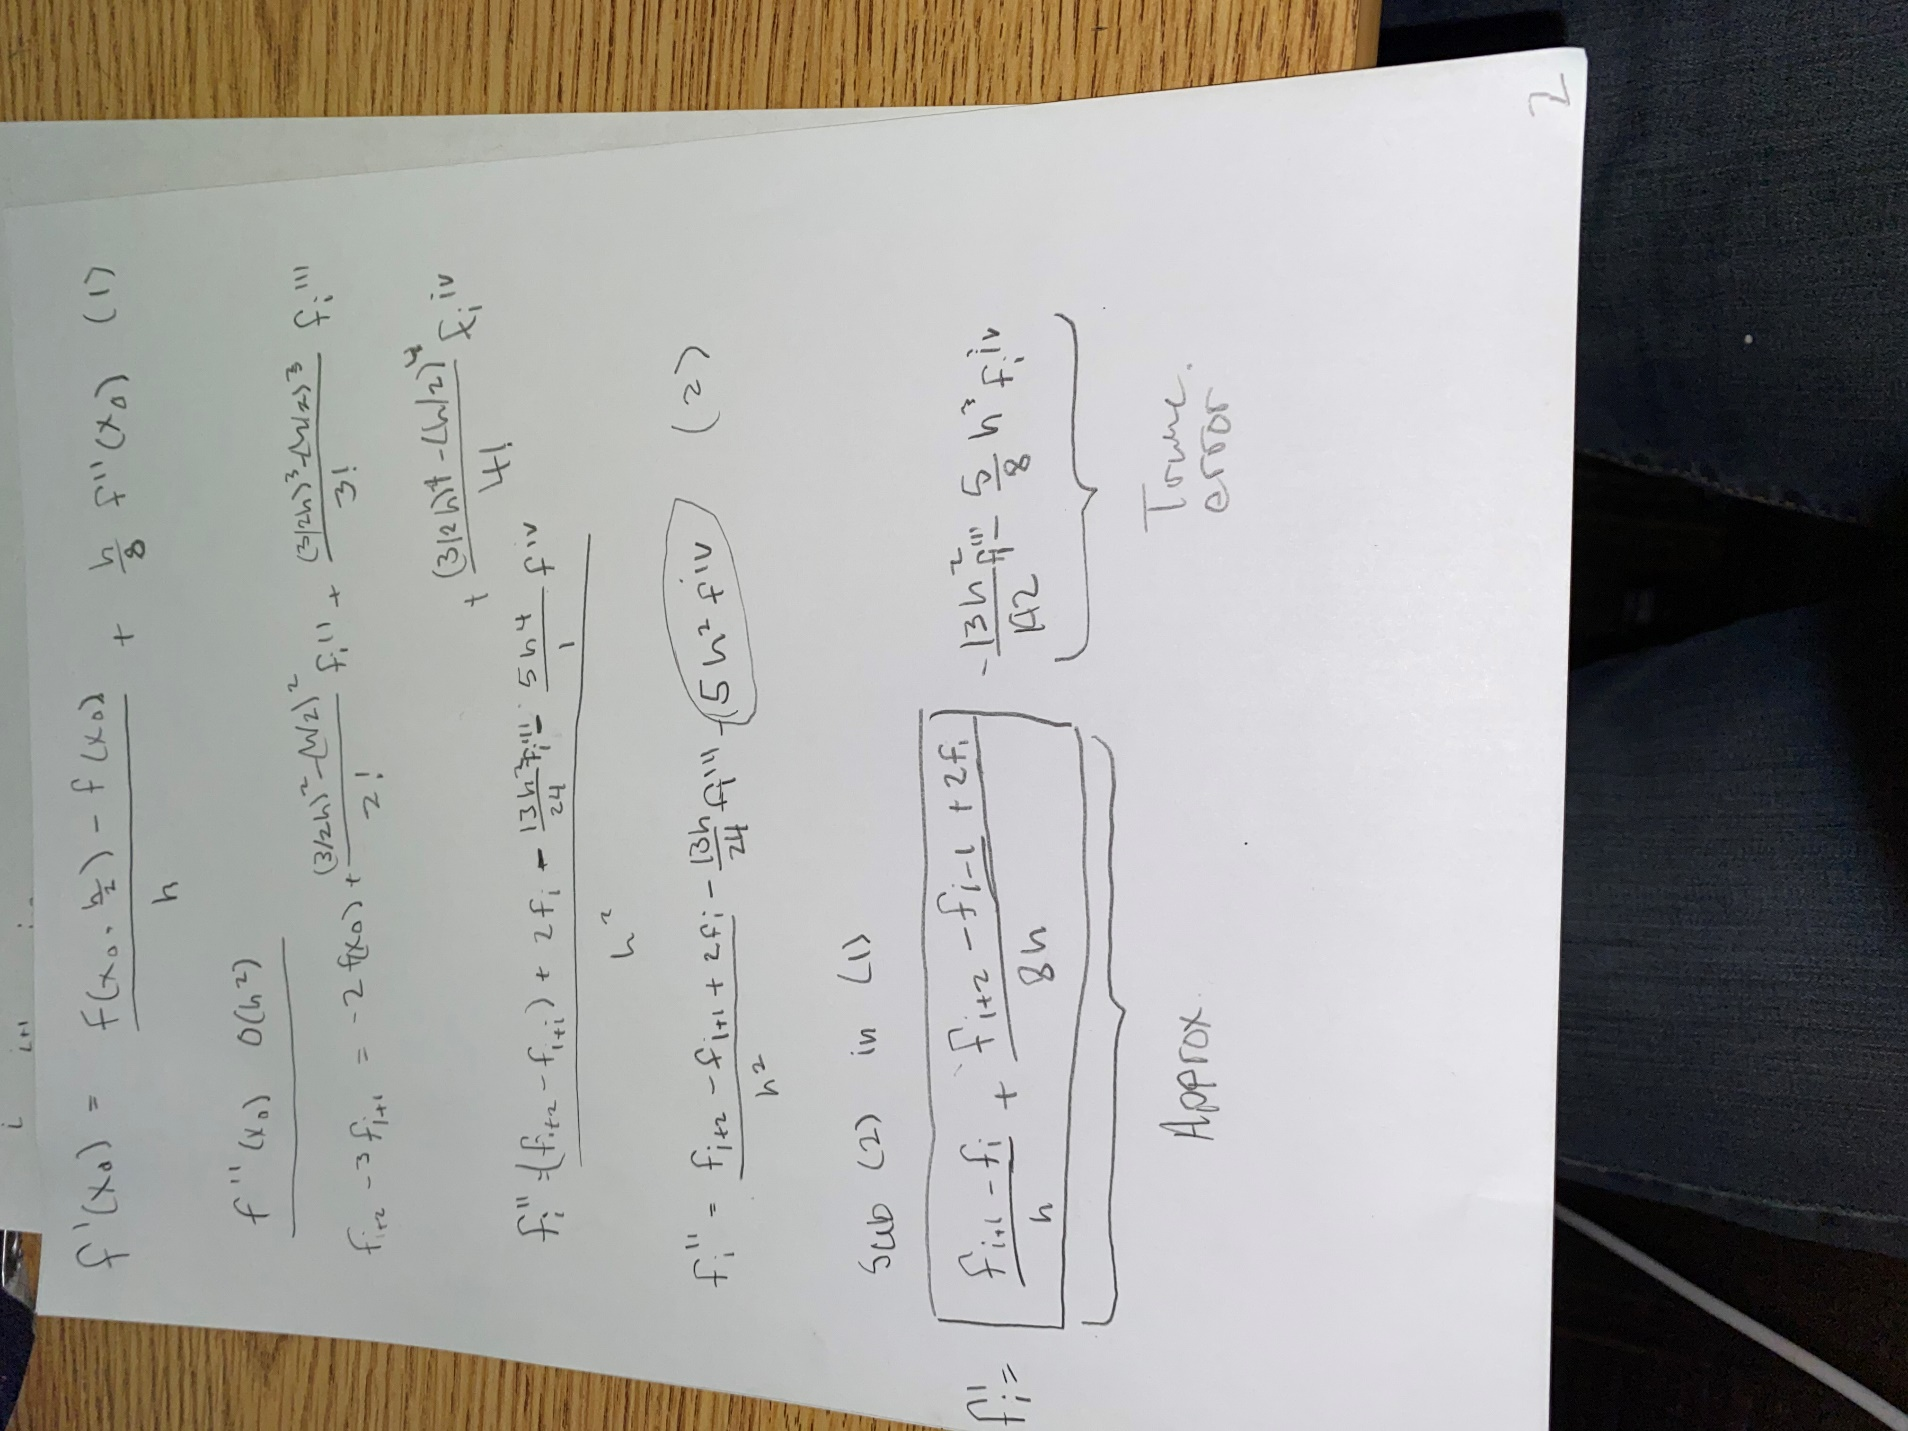 i i+1
f'(x₀) = f(x₀ + h/2) - f(x₀) / h + h/8 f''(x₀) (1)
f''(x₀) O(h²)
f_{i+2} - 3f_{i+1} = -2f(x₀) + (3/2h)² - (h/2)² / 2! f_i'' + (3/2h)³ - (h/2)³ / 3! f_i'''
+ (3/2h)⁴ - (h/2)⁴ / 4! f_i^{iv}
f_i'' = (f_{i+2} - f_{i+1}) + 2f_i + - 13h³/24 f_i''' - 5h⁴/1 f^{iv} / h²
f_i'' = f_{i+2} - f_{i+1} + 2f_i / h² - 13h/24 f_i''' - 5h² f^{iv} (2)
Sub (2) in (1)
f_i'' = f_{i+1} - f_i / h + f_{i+2} - f_{i-1} + 2f_i / 8h - 13h²/192 f_i''' - 5/8 h³ f_i^{iv}
Approx.
Trunc.
error
2